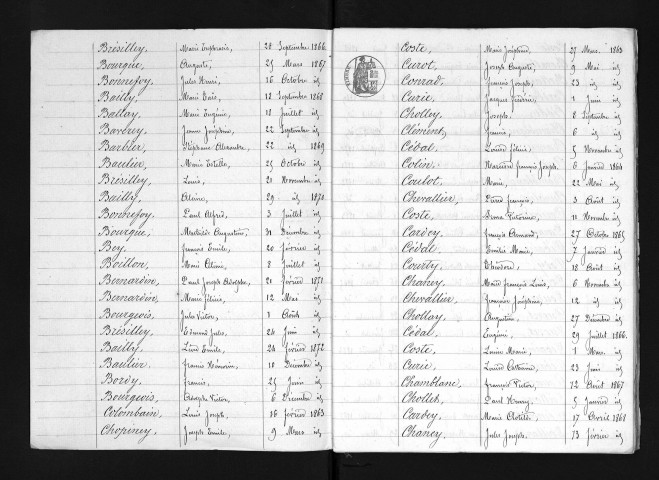 Brésilley, Marie Euphrasie, 28 Septembre 1866
Bourgue, Auguste, 25 Mars 1867
Bonnefoy, Jules Henri, 16 Octobre id
Bailly, Marie 12 Septembre 1868
Ballay, Marie Eugénie, 18 Juillet id
Barberey, Jeanne Joséphine, 22 Septembre id
Barbier, Stéphanie Alexandre, 22 id 1869
Baulier, Marie Estelle, 25 Octobre id
Brésilley, Louis, 21 Novembre id
Bailly, 29 id 1870
Bonnefoy, Paul Alfred, 3 Juillet id
Bourgue, Mathilde Augustine, 31 Décembre id
Bey, François Emile, 20 février id
Boillon, Marie 8 Juillet id
Bernardin, Paul Joseph Adolphe, 21 février 1871
Bernardin, Marie 12 Mai id
Bourgeois, Jules Victor, 1 Août id
Brésilley, Edmond Jules, 24 Juin id
Bailly, Léon Emile, 24 février 1872
Baulier, Francis 10 Décembre id
Bordy, Francis, 25 Juin id
Bourgeois, Adolphe Victor, 6 Décembre id
Colombain, Louis Joseph, 16 février 1863
Chopiney, Joseph Emile, 9 Mars id
Coste, Marie Joséphine, 27 Mars 1863
Curot, Joseph Auguste, 9 Mai id
Conrad, François Joseph, 23 id id
Curie, Jacques 1 Juin id
Cholley, Joseph, 8 Septembre id
Clément, 6 id id
Cédal, 5 Novembre id
Colin, François Joseph, 6 Janvier 1864
Coulot, Marie, 22 Mai id
Chevallier, François, 3 Août id
Coste, Irma Victorine, 11 Novembre id
Cardey, François Armand, 27 Octobre 1865
Cédal, Emilie Marie, 7 Janvier id
Courty, Théodore, 18 Août id
Chaney, François Louis, 6 Novembre id
Chevallier, Françoise Joséphine, 12 id id
Chollay, Augustine, 27 Décembre id
Cédal, Eugénie, 29 Juillet 1866
Coste, Louise Marie, 1 Mars id
Curie, Louise 23 Juin id
Chamblanc, François Victor, 12 Août 1867
Chollet, Paul Henry, 5 Janvier id
Cardey, Marie Clotilde, 17 Avril 1868
Chaney, Jules Joseph, 13 février id